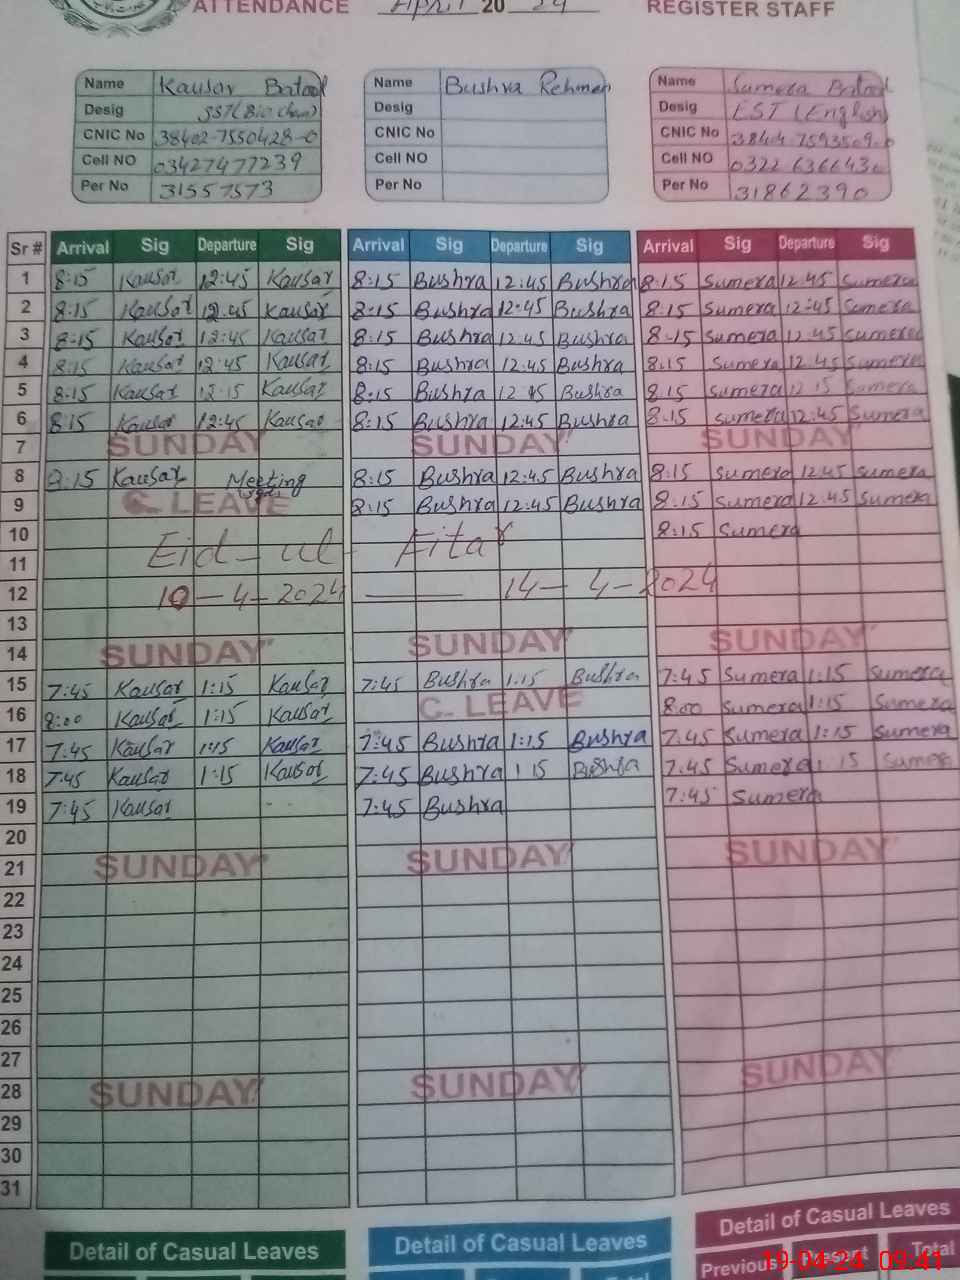 ATTENDANCE April 20 24 REGISTER STAFF
Name Kausar Batool Name Bushra Rehman Name Sumera Batool
Desig SST(Bio Chem) Desig Desig EST (English)
CNIC No 38402-7550428-0 CNIC No CNIC No 38404-7593509-0
Cell NO 03427477239 Cell NO Cell NO 0322 6366430
Per No 31557573 Per No Per No 31862390
Sr # Arrival Sig Departure Sig Arrival Sig Departure Sig Arrival Sig Departure Sig
1 8:15 Kausar 12:45 Kausar 8:15 Bushra 12:45 Bushra 8:15 Sumera 12:45 Sumera
2 8:15 Kausar 12:45 Kausar 8:15 Bushra 12:45 Bushra 8:15 Sumera 12:45 Sumera
3 8:15 Kausar 12:45 Kausar 8:15 Bushra 12:45 Bushra 8:15 Sumera 12:45 Sumera
4 8:15 Kausar 12:45 Kausar 8:15 Bushra 12:45 Bushra 8:15 Sumera 12:45 Sumera
5 8:15 Kausar 12:15 Kausar 8:15 Bushra 12 45 Bushra 8:15 Sumera 12 15 Sumera
6 8:15 Kausar 12:45 Kausar 8:15 Bushra 12:45 Bushra 8:15 Sumera 12:45 Sumera
7 SUNDAY SUNDAY SUNDAY
8 8:15 Kausar Meeting 8:15 Bushra 12:45 Bushra 8:15 Sumera 12:45 Sumera
9 C. LEAVE 8:15 Bushra 12:45 Bushra 8:15 Sumera 12:45 Sumera
10 8:15 Sumera
11 Eid-ul-Fitar
12 10-4-2024 14-4-2024
13
14 SUNDAY SUNDAY SUNDAY
15 7:45 Kausar 1:15 Kausar 7:45 Bushra 1:15 Bushra 7:45 Sumera 1:15 Sumera
16 8:00 Kausar 1:15 Kausar C. LEAVE 8:00 Sumera 1:15 Sumera
17 7:45 Kausar 1:15 Kausar 7:45 Bushra 1:15 Bushra 7:45 Sumera 1:15 Sumera
18 7:45 Kausar 1:15 Kausar 7:45 Bushra 1 15 Bushra 7:45 Sumera 1:15 Sumera
19 7:45 Kausar 7:45 Bushra 7:45 Sumera
20
21 SUNDAY SUNDAY SUNDAY
22
23
24
25
26
27
28 SUNDAY SUNDAY SUNDAY
29
30
31
Detail of Casual Leaves Detail of Casual Leaves Detail of Casual Leaves
Total Previous Present Total
19-04-24 09:41